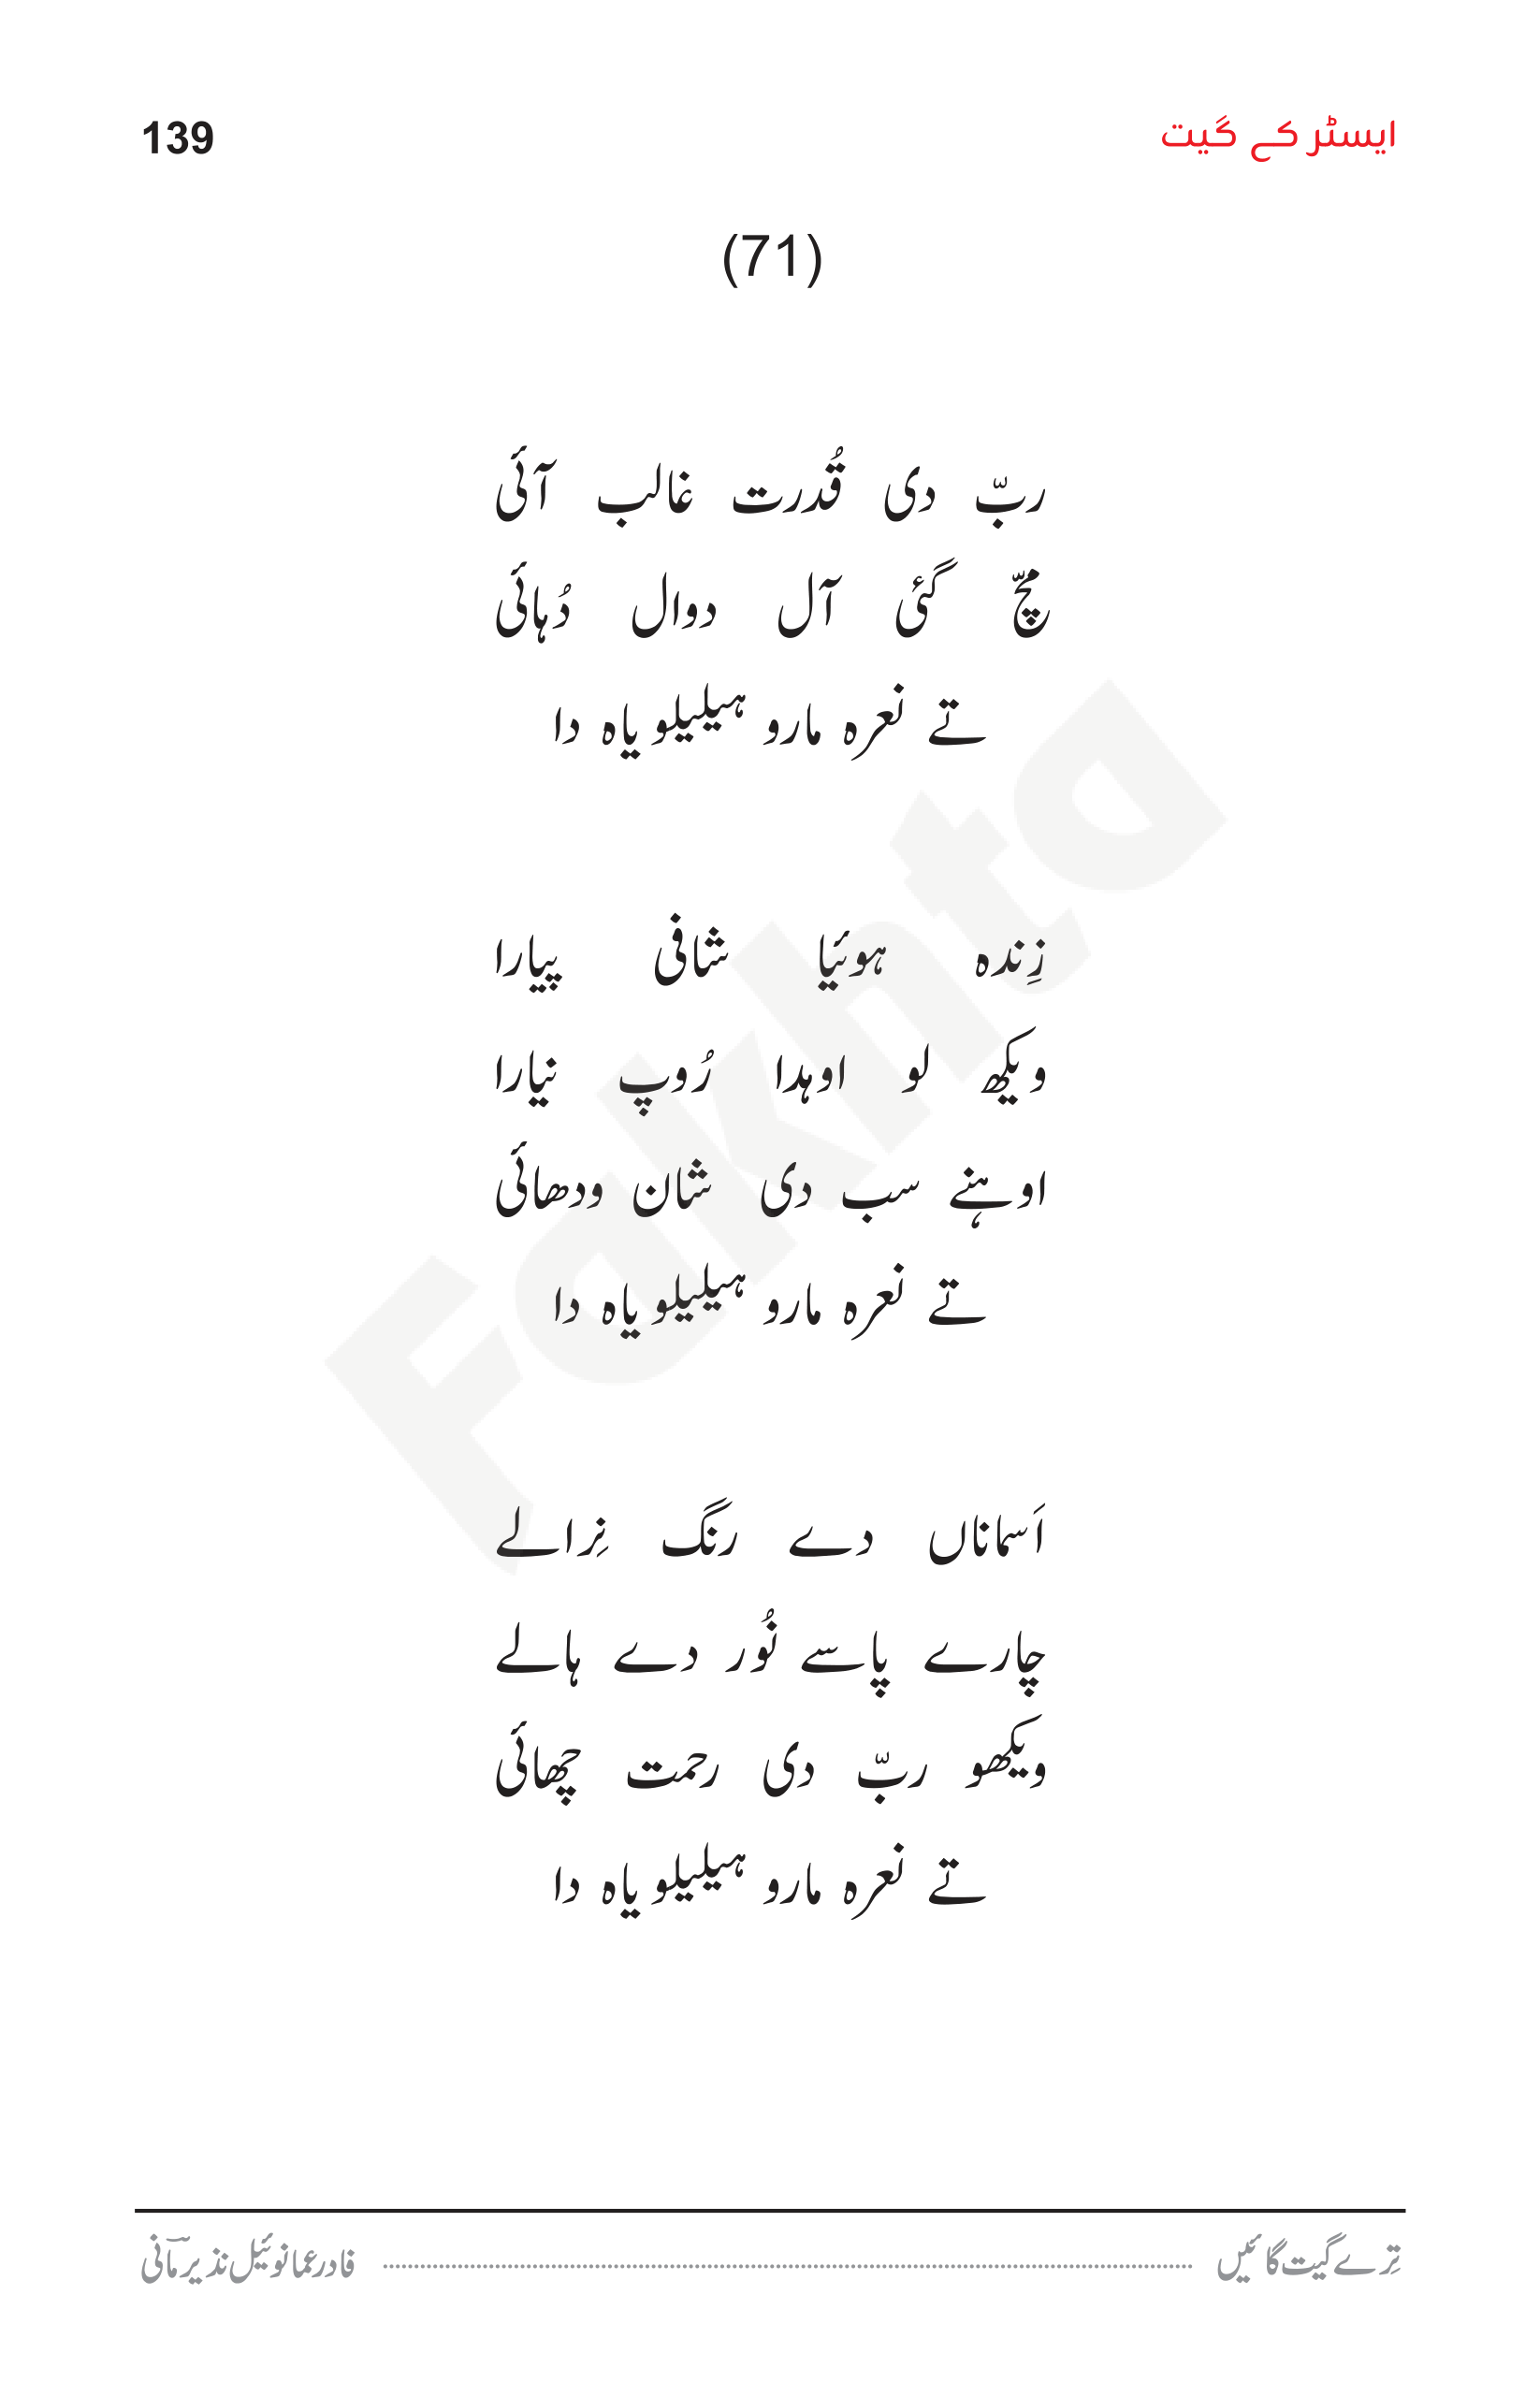 ایسٹر کے گیت 139
(71)
ربّ دی قُدرت غالب آئی
مچّ گئی آل دوال دُہائی
تے نعرہ مارو ہیلیلویاہ دا
زِندہ ہوئیا شافی پیارا
ویکھ لو اوہدا رُوپ نیارا
اوہنے سب دی شان ودھائی
تے نعرہ مارو ہیلیلویاہ دا
اَسماناں دے رنگ نِرالے
چارے پاسے نُور دے ہالے
ویکھو ربّ دی رحمت چھائی
تے نعرہ مارو ہیلیلویاہ دا
تِرے گیت گائیں فادر عمانوئیل نذیر مآنی
Fakhta